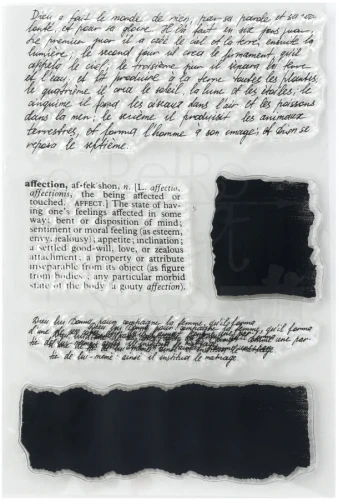 Dieu a fait le monde de rien, par sa parole et sa vo-
lonté, et pour sa gloire. Il l'a fait en six jours
premier jour il a créé le ciel et la terre, ensuite la
lumière; le second jour il créa le firmament qu'il
appela le ciel; le troisième jour il sépara la terre
et l'eau, et fit produire à la terre toutes les plantes,
le quatrième il créa le soleil, la lune et les étoiles; le
cinquième il fond les oiseaux dans l'air et les poissons
dans la mer; le sixième il produisit les animaux
terrestres, et forma l'homme à son image; et
reposa le septième.
affection, af-fek′shon, n. [L. affectio,
affectionis, the being affected or
touched. AFFECT.] The state of hav-
ing one's feelings affected in some
way; bent or disposition of mind;
sentiment or moral feeling (as esteem,
envy, jealousy); appetite; inclination;
a settled good-will, love, or zealous
attachment; a property or attribute
inseparable from its object (as figure
from bodies); any particular morbid
state of the body (a gouty affection).
Dieu lui donna pour compagne la femme, qu'il forma
d'une
tie de lui-même: ainsi il institua le mariage